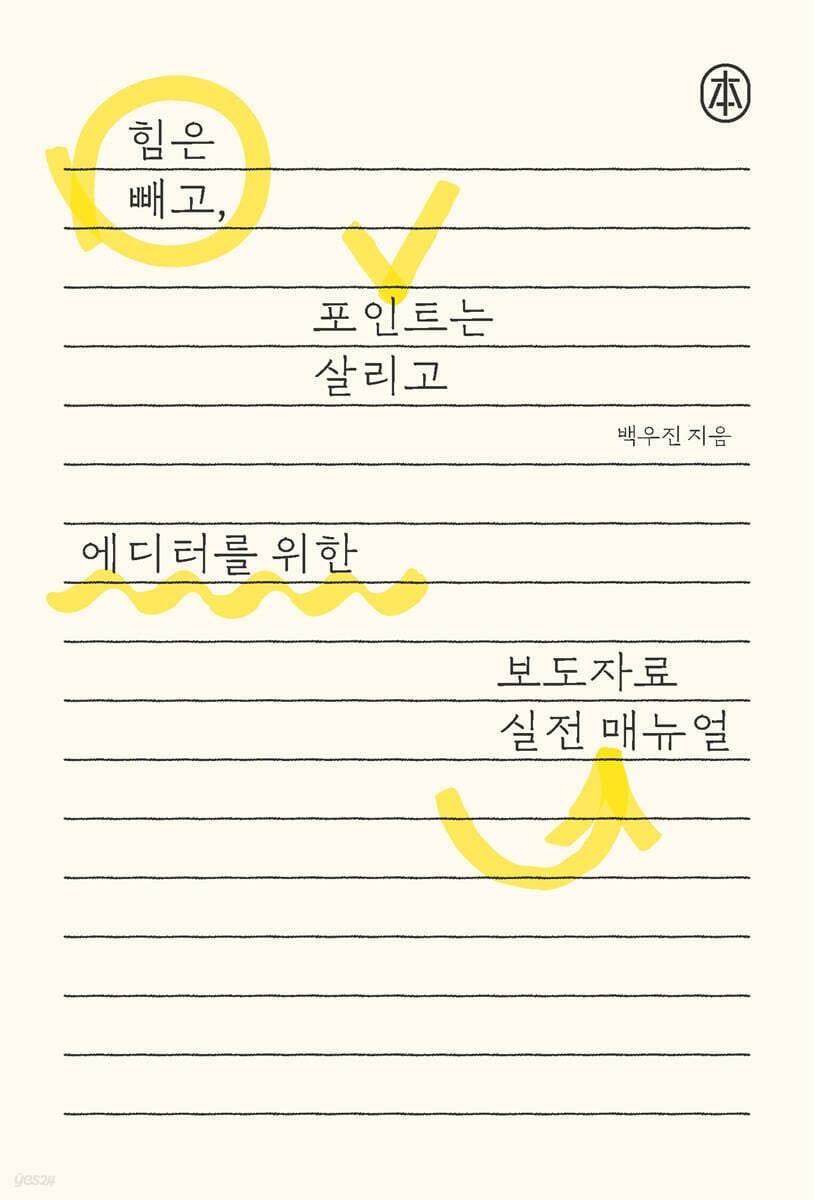 本
힘은
빼고,
포인트는
살리고
백우진 지음
에디터를 위한
보도자료
실전 매뉴얼
yes24